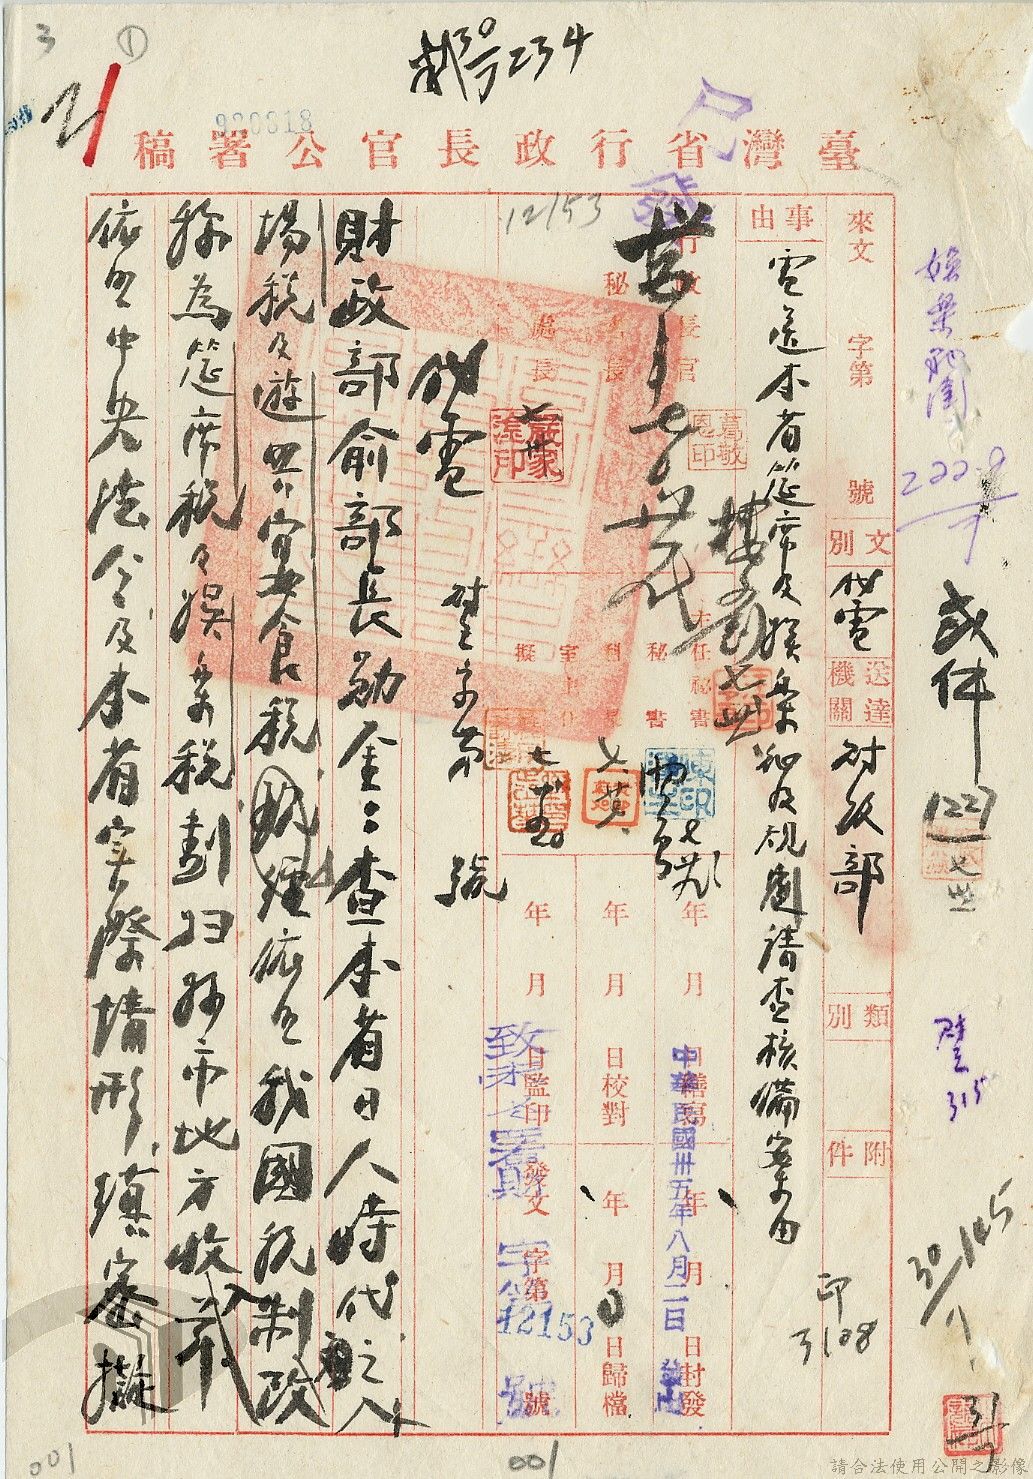 3
①
刪 30/7 234
920618
臺灣省行政長官公署稿
來文 字第 號
文別 代電
送達機關 財政部
類別
附件
事由
電送本省筵席及娛樂稅及規則請查核備案由
行政長官
秘書長
處長
葛敬恩印
嚴家淦印
主任秘書
秘書
科長
室主任
擬
年 月 日繕寫
年 月 日校對
年 月 日監印
年 月 日封發
年 月 日歸檔
發文 字第 號
中華民國卅五年八月二日
致未冬署財
字 12153 號
12153
代電
財政部俞部長勛鑒:查本省日人時代之入
場稅及遊興宴食稅經依照我國稅制改
稱為筵席稅及娛樂稅劃歸縣市地方收入
依照中央法令及本省實際情形縝密擬
貳件
1227
315
30/7 145
印
3108
001
001
請合法使用公開之影像